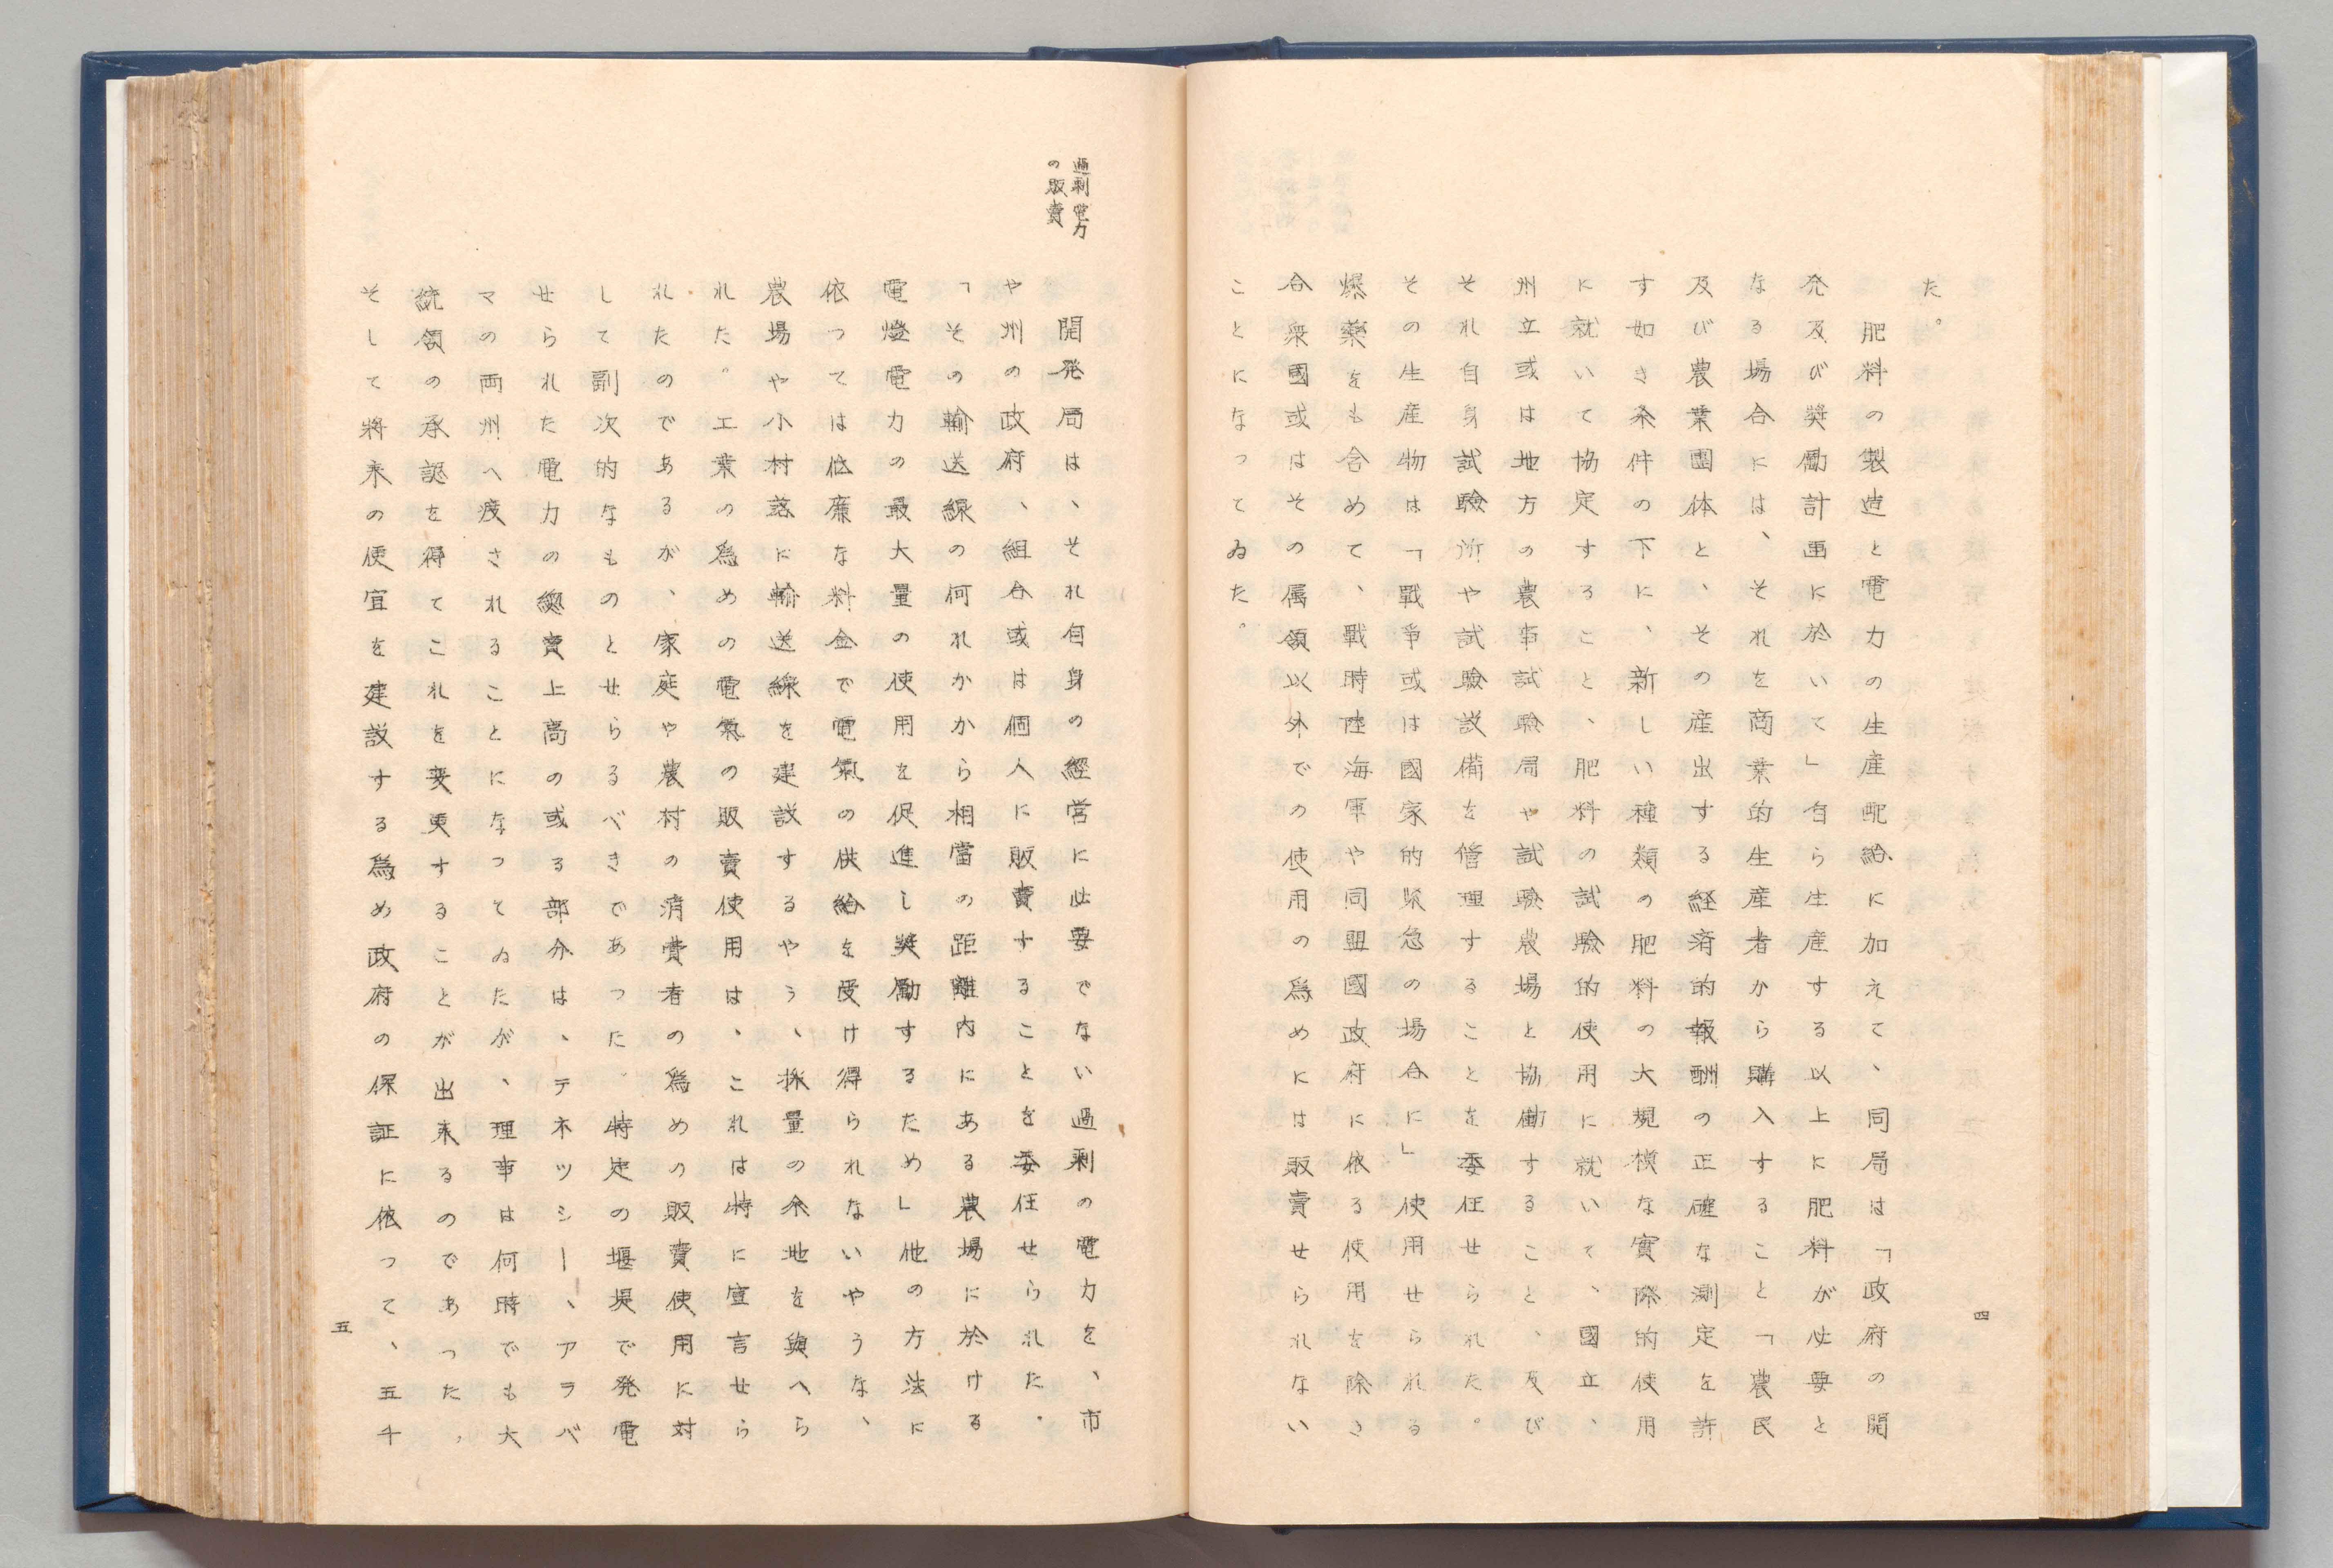 た。
肥料の製造と電力の生産配給に加えて、同局は「政府の開
発及び奨勵計画に於いて」自ら生産する以上に肥料が必要と
なる場合には、それを商業的生産者から購入すること「農民
及び農業團体と、その産出する経済的報酬の正確な測定を許
す如き条件の下に、新しい種類の肥料の大規模な實際的使用
に就いて協定すること、肥料の試驗的使用に就いて、國立、
州立或は地方の農事試驗局や試驗農場と協働すること、及び
それ自身試驗所や試驗設備を管理することを委任せられた。
その生産物は「戰爭或は國家的緊急の場合に」使用せられる
爆藥をも含めて、戰時陸海軍や同盟國政府に依る使用を除き
合衆國或はその属領以外での使用の爲めには販賣せられない
ことになってゐた。
四
過剰電力
の販賣
開発局は、それ自身の經営に必要でない過剰の電力を、市
や州の政府、組合或は個人に販賣することを委任せられた。
「その輸送線の何れかから相當の距離内にある農場に於ける
電燈電力の最大量の使用を促進し奬勵するため」他の方法に
依っては低廉な料金で電氣の供給を受け得られないやうな、
農場や小村落に輸送線を建設するやう、採量の余地を與へら
れた。工業の爲めの電氣の販賣使用は、これは特に宣言せら
れたのであるが、家庭や農村の消費者の爲めの販賣使用に対
して副次的なものとせらるべきであった。特定の堰堤で発電
せられた電力の總賣上高の或る部分は、テネツシー、アラバ
マの両州へ渡されることになってゐたが、理事は何時でも大
統領の承認を得てこれを変更することが出来るのであった。
そして將来の便宜を建設する爲め政府の保証に依って、五千
五